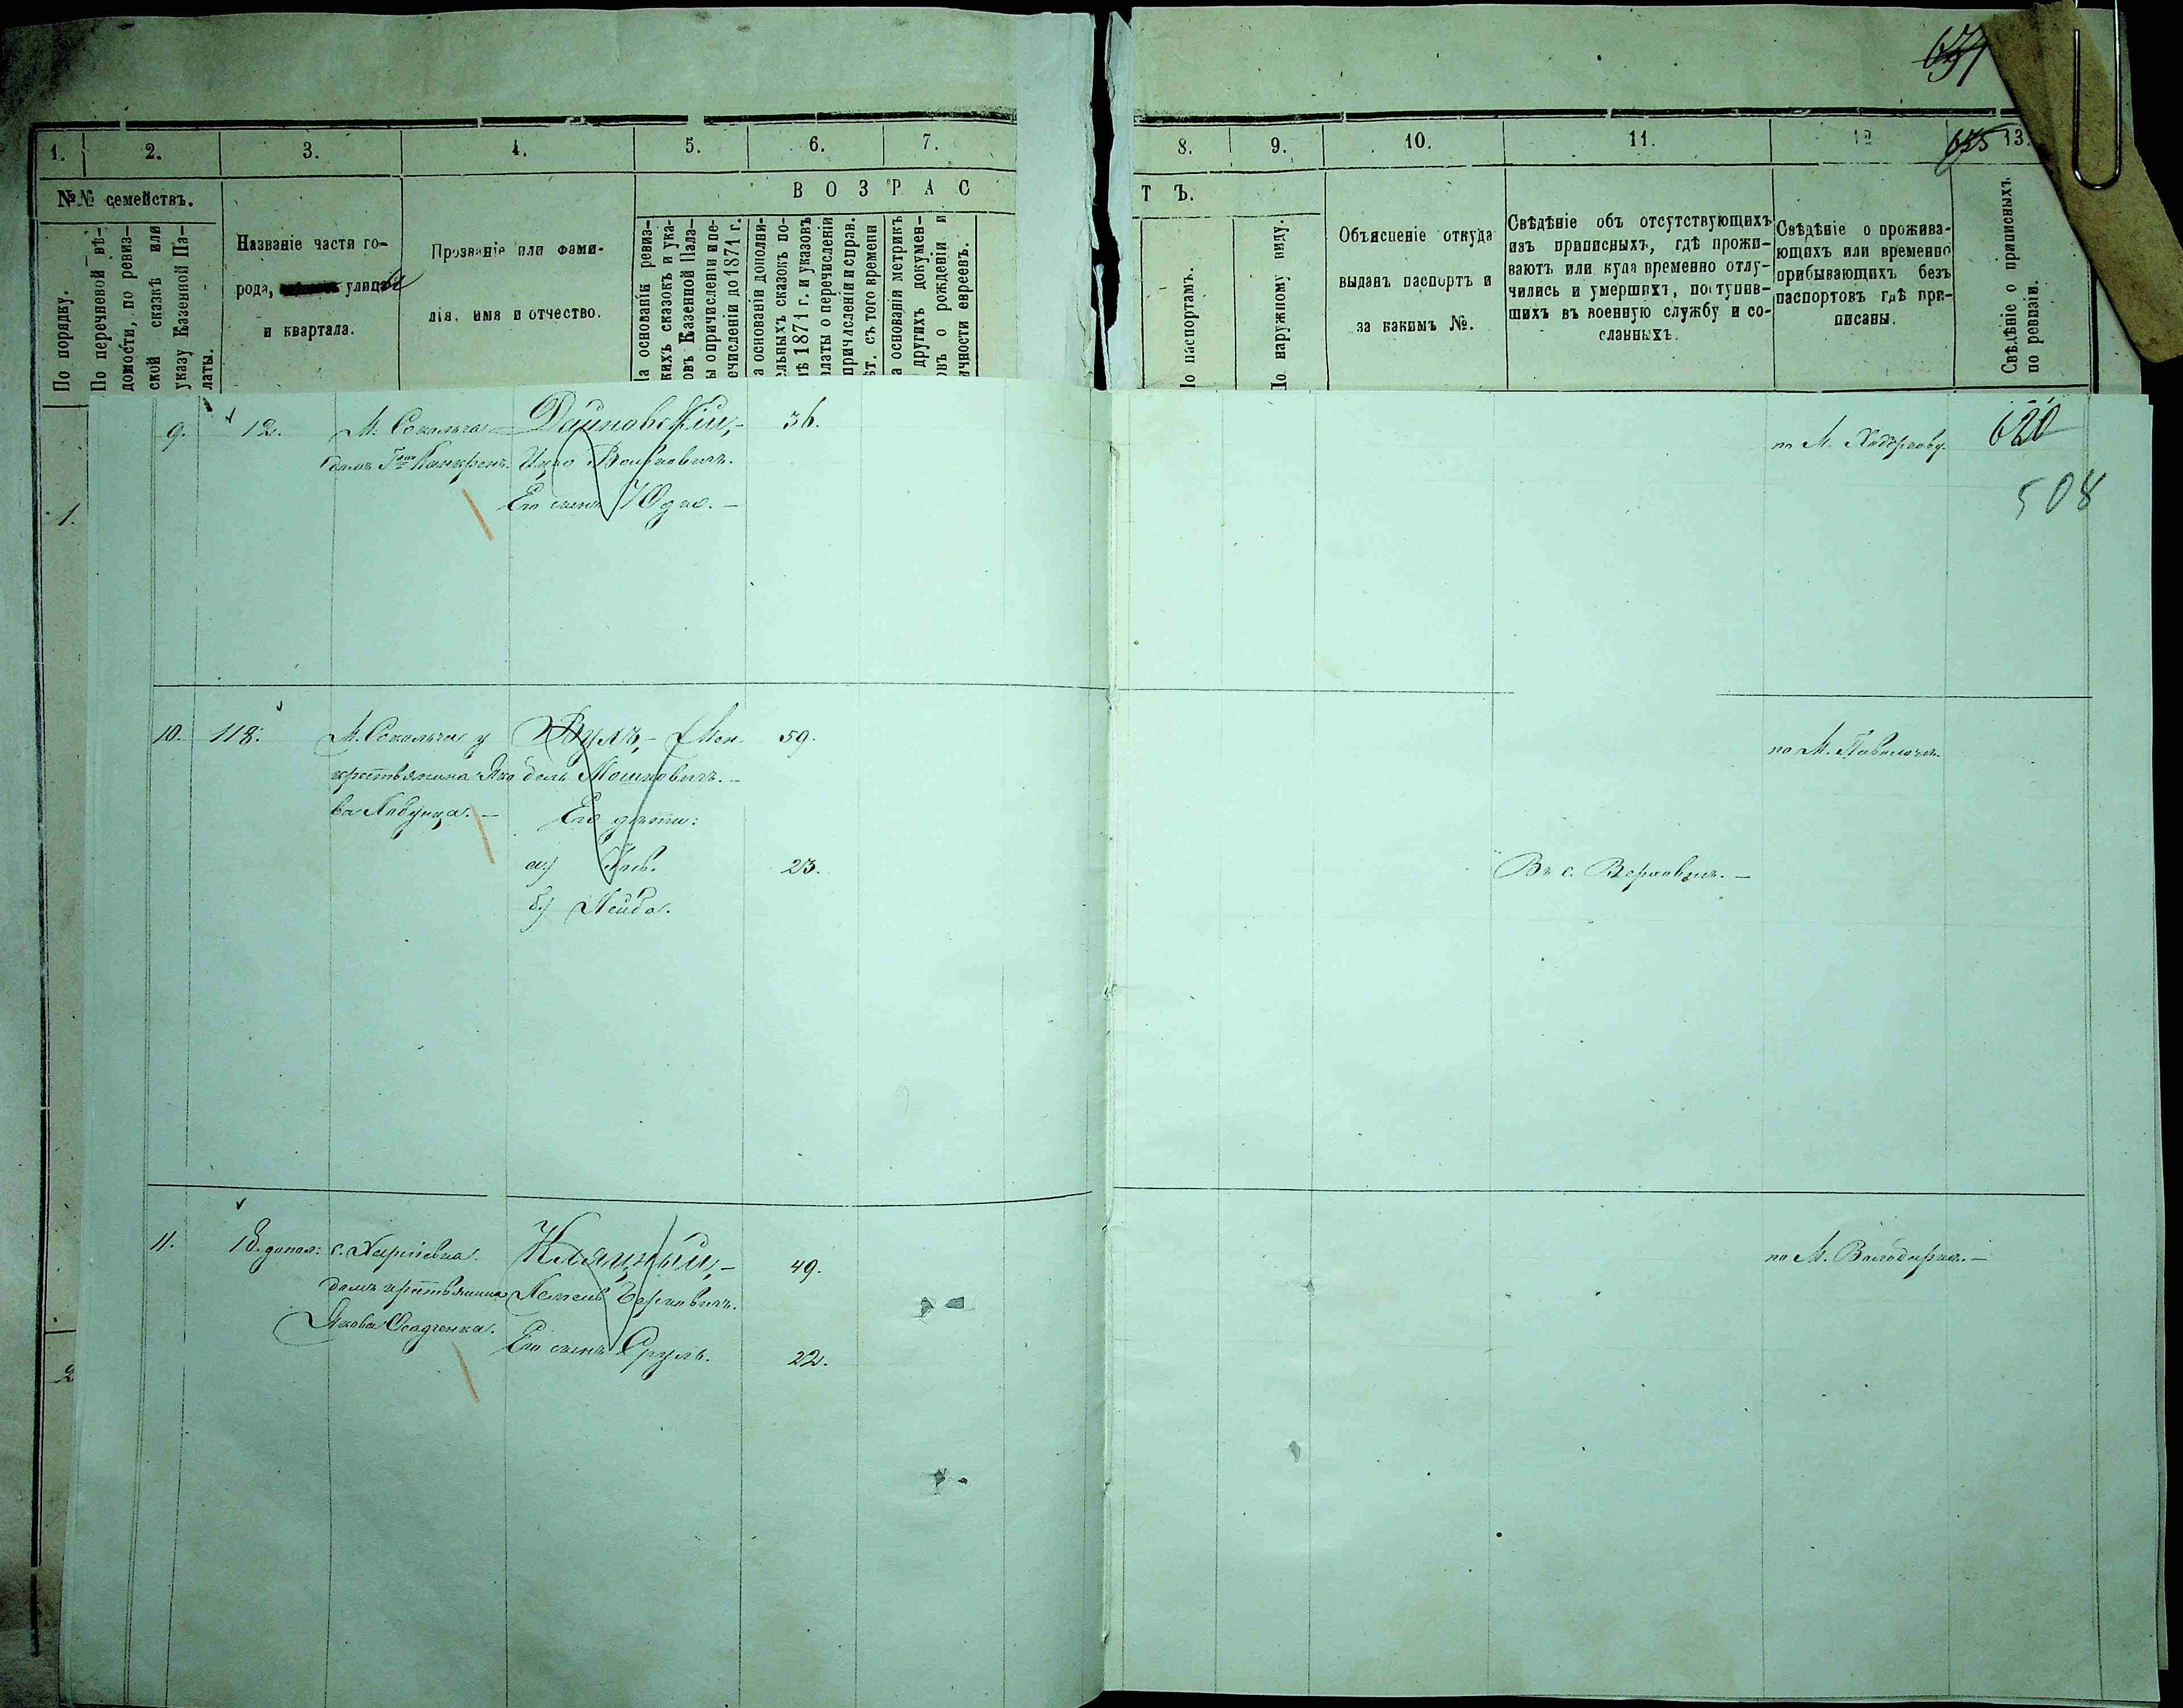 631
1. 2. 3. 4. 5. 6. 7. 8. 9. 10. 11. 12 13.
635
№№ семействъ.
По порядку.
По перечневой вѣ-
домости, по ревиз-
ской сказкѣ или
указу Казенной Па-
латы.
Названіе части го-
рода, улицы
и квартала.
Прозваніе или фами-
лія, имя и отчество.
ВОЗРАС
ТЪ.
а основаніи ревиз-
кихъ сказокъ и ука-
овъ Казенной Пала-
ы о причисленіи и пе-
ечисленіи до 1871 г.
а основаніи дополни-
ельныхъ сказокъ по-
лѣ 1871 г. и указовъ
алаты о перечисленіи
причисленіи и справ.
ѣт. съ того времени
а основаніи метрикъ
другихъ докумен-
овъ о рожденіи и
ичности евреевъ.
По паспортамъ.
По наружному виду.
Объясненіе откуда
выданъ паспортъ и
за какимъ №.
Свѣдѣніе объ отсутствующихъ
изъ приписныхъ, гдѣ прожи-
ваютъ или куда временно отлу-
чились и умершихъ, поступив-
шихъ въ военную службу и со-
сланныхъ.
Свѣдѣніе о прожива-
ющихъ или временно
прибывающихъ безъ
паспортовъ гдѣ при-
писаны.
Свѣдѣніе о приписныхъ
по ревизіи.
1.
2
9. 12. М. Сокольча Дайновскій,- 36. по М. 620
домъ
Его сынъ Юдко. -
508
10. 118. М. Сокольча у Вулъ,- Мен- 59. по М. Паволочи.
крестьянина Яко- дель Мошковичъ. -
ва - Его дѣти:
а.) 23. Въ с. -
б.) Лейба.
11. 18. допол: с. - 49. по М. Володарка. -
домъ крестьянина Берковичъ.
Якова Осадченка.
Его сынъ Сруль. 22.